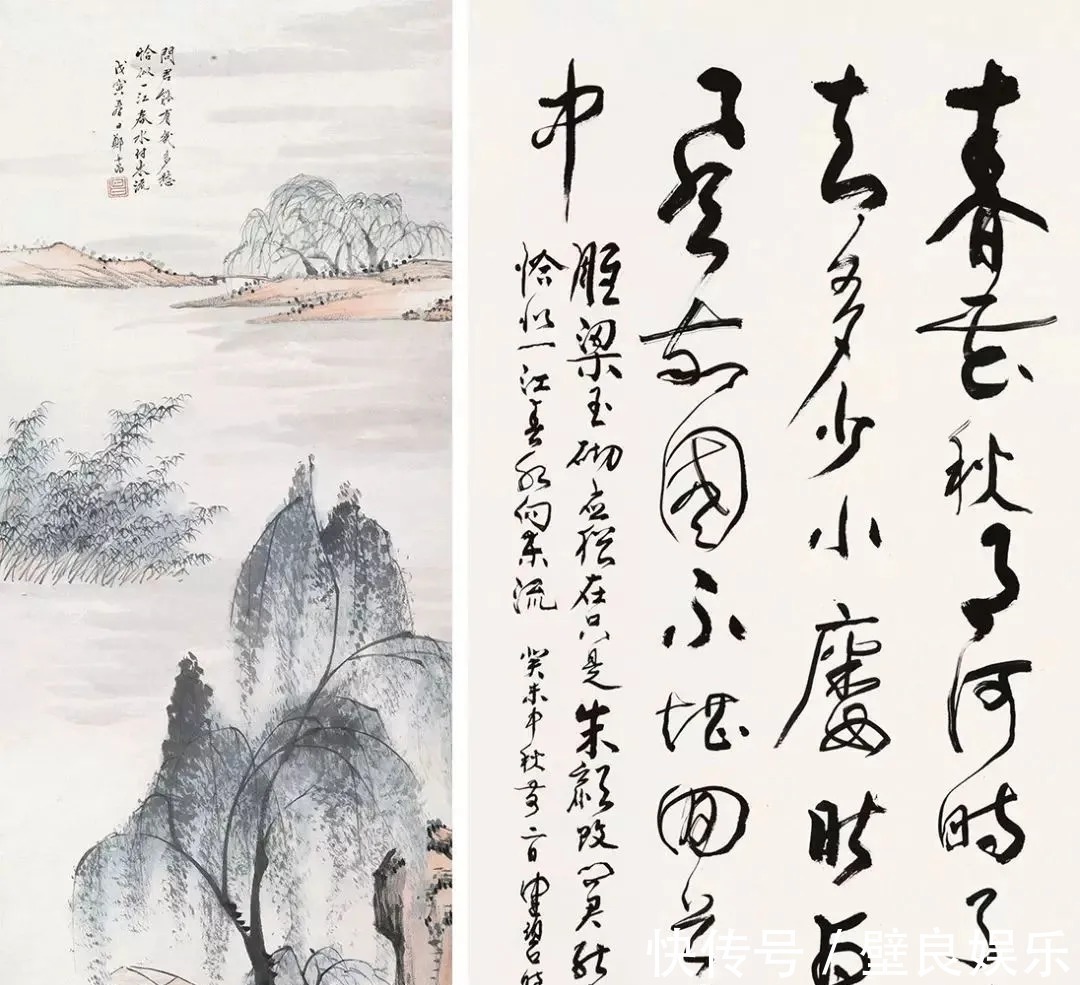 問君能有幾多愁
恰似一江春水付東流
戊寅春日鄭午昌
春花秋月何時了
知多少小樓昨夜
風故國不堪回首
中
雕梁玉砌應猶在只是朱顏改問君能
恰似一江春水向東流 癸未中秋 二日
快传号 / 壁良娱乐